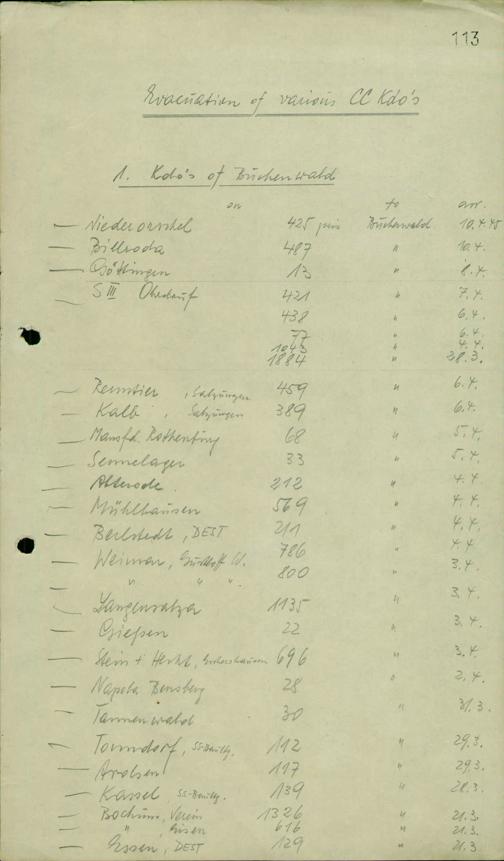 113
Evacuation of various CC Kdo's
1. Kdo's of Buchenwald
on to arr.
— Niederorschel 425 pris Buchenwald 10.4.45
— Billroda 487 " 10.4.
— Göttingen 13 " 8.4.
— S III Ohrdruf 421 " 7.4.
438 " 6.4.
77 " 6.4.
1043 " 4.4.
1884 " 28.3.
— Renntier, Salzungen 459 " 6.4.
— Kalb, Salzungen 389 " 6.4.
— Mansfd. Rothenbg 68 " 5.4.
— Sennelager 33 " 5.4.
— Atterode 212 " 4.4.
— Mühlhausen 569 " 4.4.
— Berlstedt, DEST 211 " 4.4.
— Weimar, Gustloff W. 786 " 4.4.
— " " " 800 " 3.4.
— Langensalza 1135 " 3.4.
— Giessen 22 " 3.4.
— Stein + Herkt, 696 " 3.4.
— Napola Bensberg 28 " 2.4.
— Tannenwald 30 " 31.3.
— Tonndorf, SS-Baultg. 112 " 29.3.
— Arolsen 117 " 29.3.
— Kassel, SS-Baultg. 139 " 28.3.
— Bochum, Verein 1326 " 21.3.
— " Eisen 616 " 21.3.
— Essen, DEST 129 " 21.3